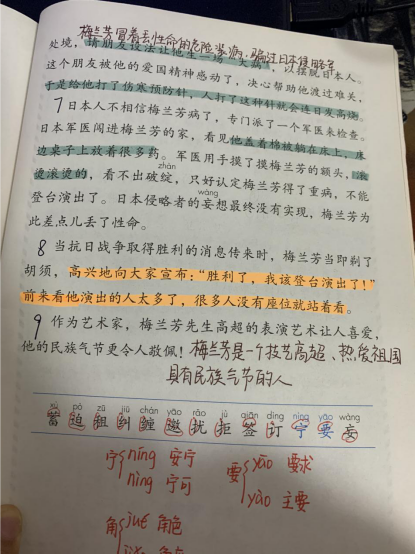 梅兰芳冒着丢性命的危险装病,骗过日本侵略军
处境,请朋友设法让他生一场“大病”,以摆脱日本人。
这个朋友被他的爱国精神感动了,决心帮助他渡过难关,
于是给他打了伤寒预防针。人打了这种针就会连日发高烧。
7 日本人不相信梅兰芳病了,专门派了一个军医来检查。
日本军医闯进梅兰芳的家,看见他盖着棉被躺在床上,床
边桌子上放着很多药。军医用手摸了摸梅兰芳的额头,滚
zhàn
烫滚烫的,看不出破绽,只好认定梅兰芳得了重病,不能
wàng
登台演出了。日本侵略者的妄想最终没有实现,梅兰芳为
此差点儿丢了性命。
8 当抗日战争取得胜利的消息传来时,梅兰芳当即剃了
胡须,高兴地向大家宣布:“胜利了,我该登台演出了!”
前来看他演出的人太多了,很多人没有座位就站着看。
9 作为艺术家,梅兰芳先生高超的表演艺术让人喜爱,
他的民族气节更令人敬佩! 梅兰芳是一个技艺高超、热爱祖国
具有民族气节的人
xù pò zū jiū chán yāo rǎo jù qiān dìng nìng yào wàng
蓄 迫 租 纠 缠 邀 扰 拒 签 订 宁 要 妄
宁 níng 安宁
nìng 宁可
要 yāo 要求
yào 主要
角 jué 角色